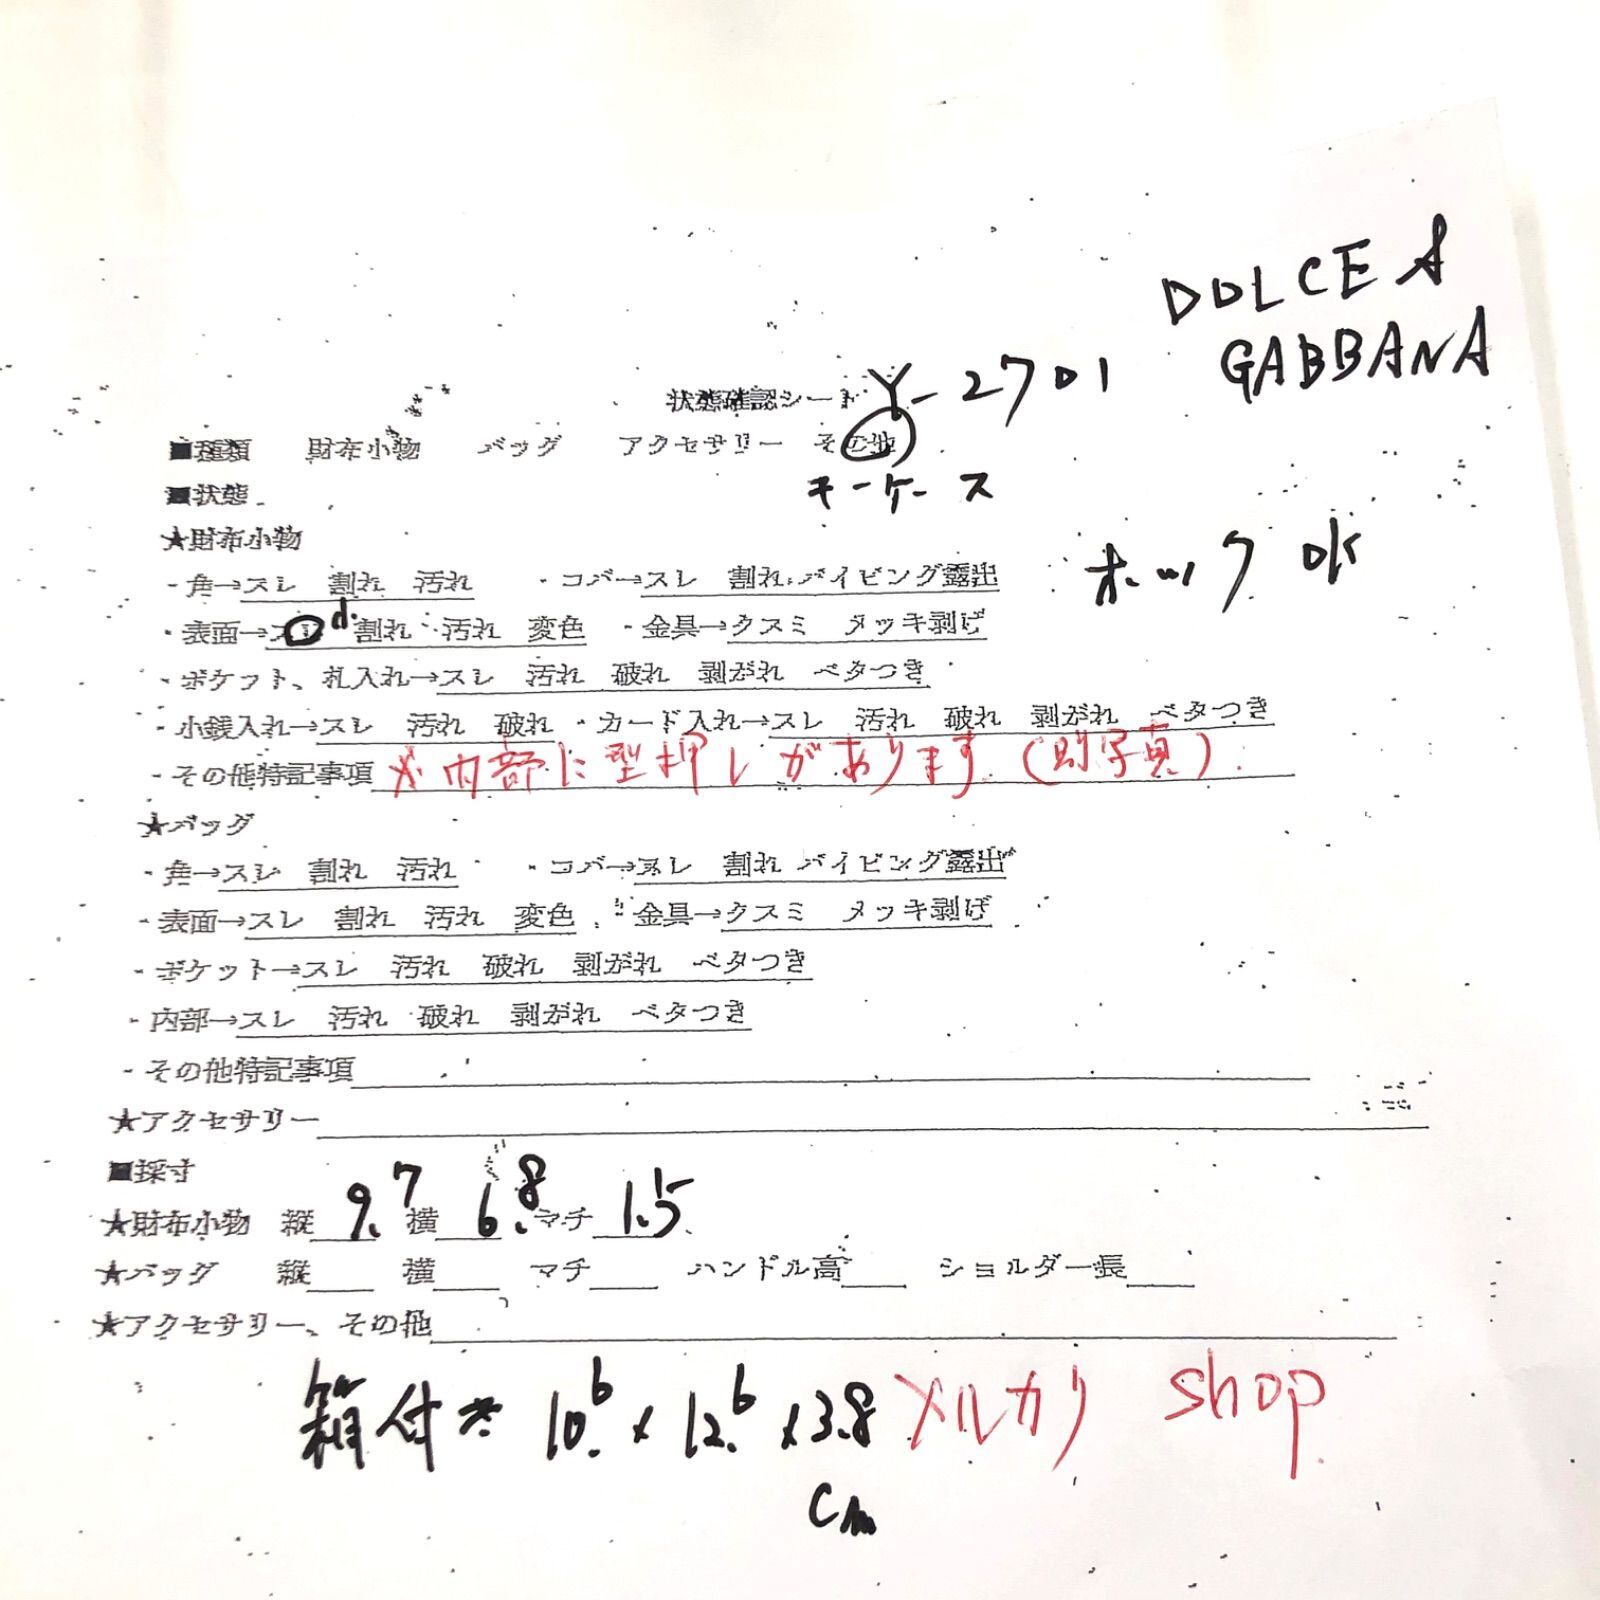 DOLCE &
GABBANA
状態確認シート Y-2701
■種類 財布小物 バッグ アクセサリー その他
■状態 キーケース
★財布小物
・角→スレ 割れ 汚れ ・コバ→スレ 割れ パイピング露出 ホック OK
・表面→スレ 割れ 汚れ 変色 ・金具→クスミ メッキ剥げ
・ポケット、札入れ→スレ 汚れ 破れ 剥がれ ベタつき
・小銭入れ→スレ 汚れ 破れ ・カード入れ→スレ 汚れ 破れ 剥がれ ベタつき
・その他特記事項 ※内部に型押しがあります(別写真)
★バッグ
・角→スレ 割れ 汚れ ・コバ→スレ 割れ パイピング露出
・表面→スレ 割れ 汚れ 変色 ・金具→クスミ メッキ剥げ
・ポケット→スレ 汚れ 破れ 剥がれ ベタつき
・内部→スレ 汚れ 破れ 剥がれ ベタつき
・その他特記事項
★アクセサリー
■採寸
★財布小物 縦 9.7 横 6.8 マチ 1.5
★バッグ 縦 横 マチ ハンドル高 ショルダー長
★アクセサリー、その他
箱付 ※ 10.6 × 12.6 × 3.8 メルカリ shop
cm